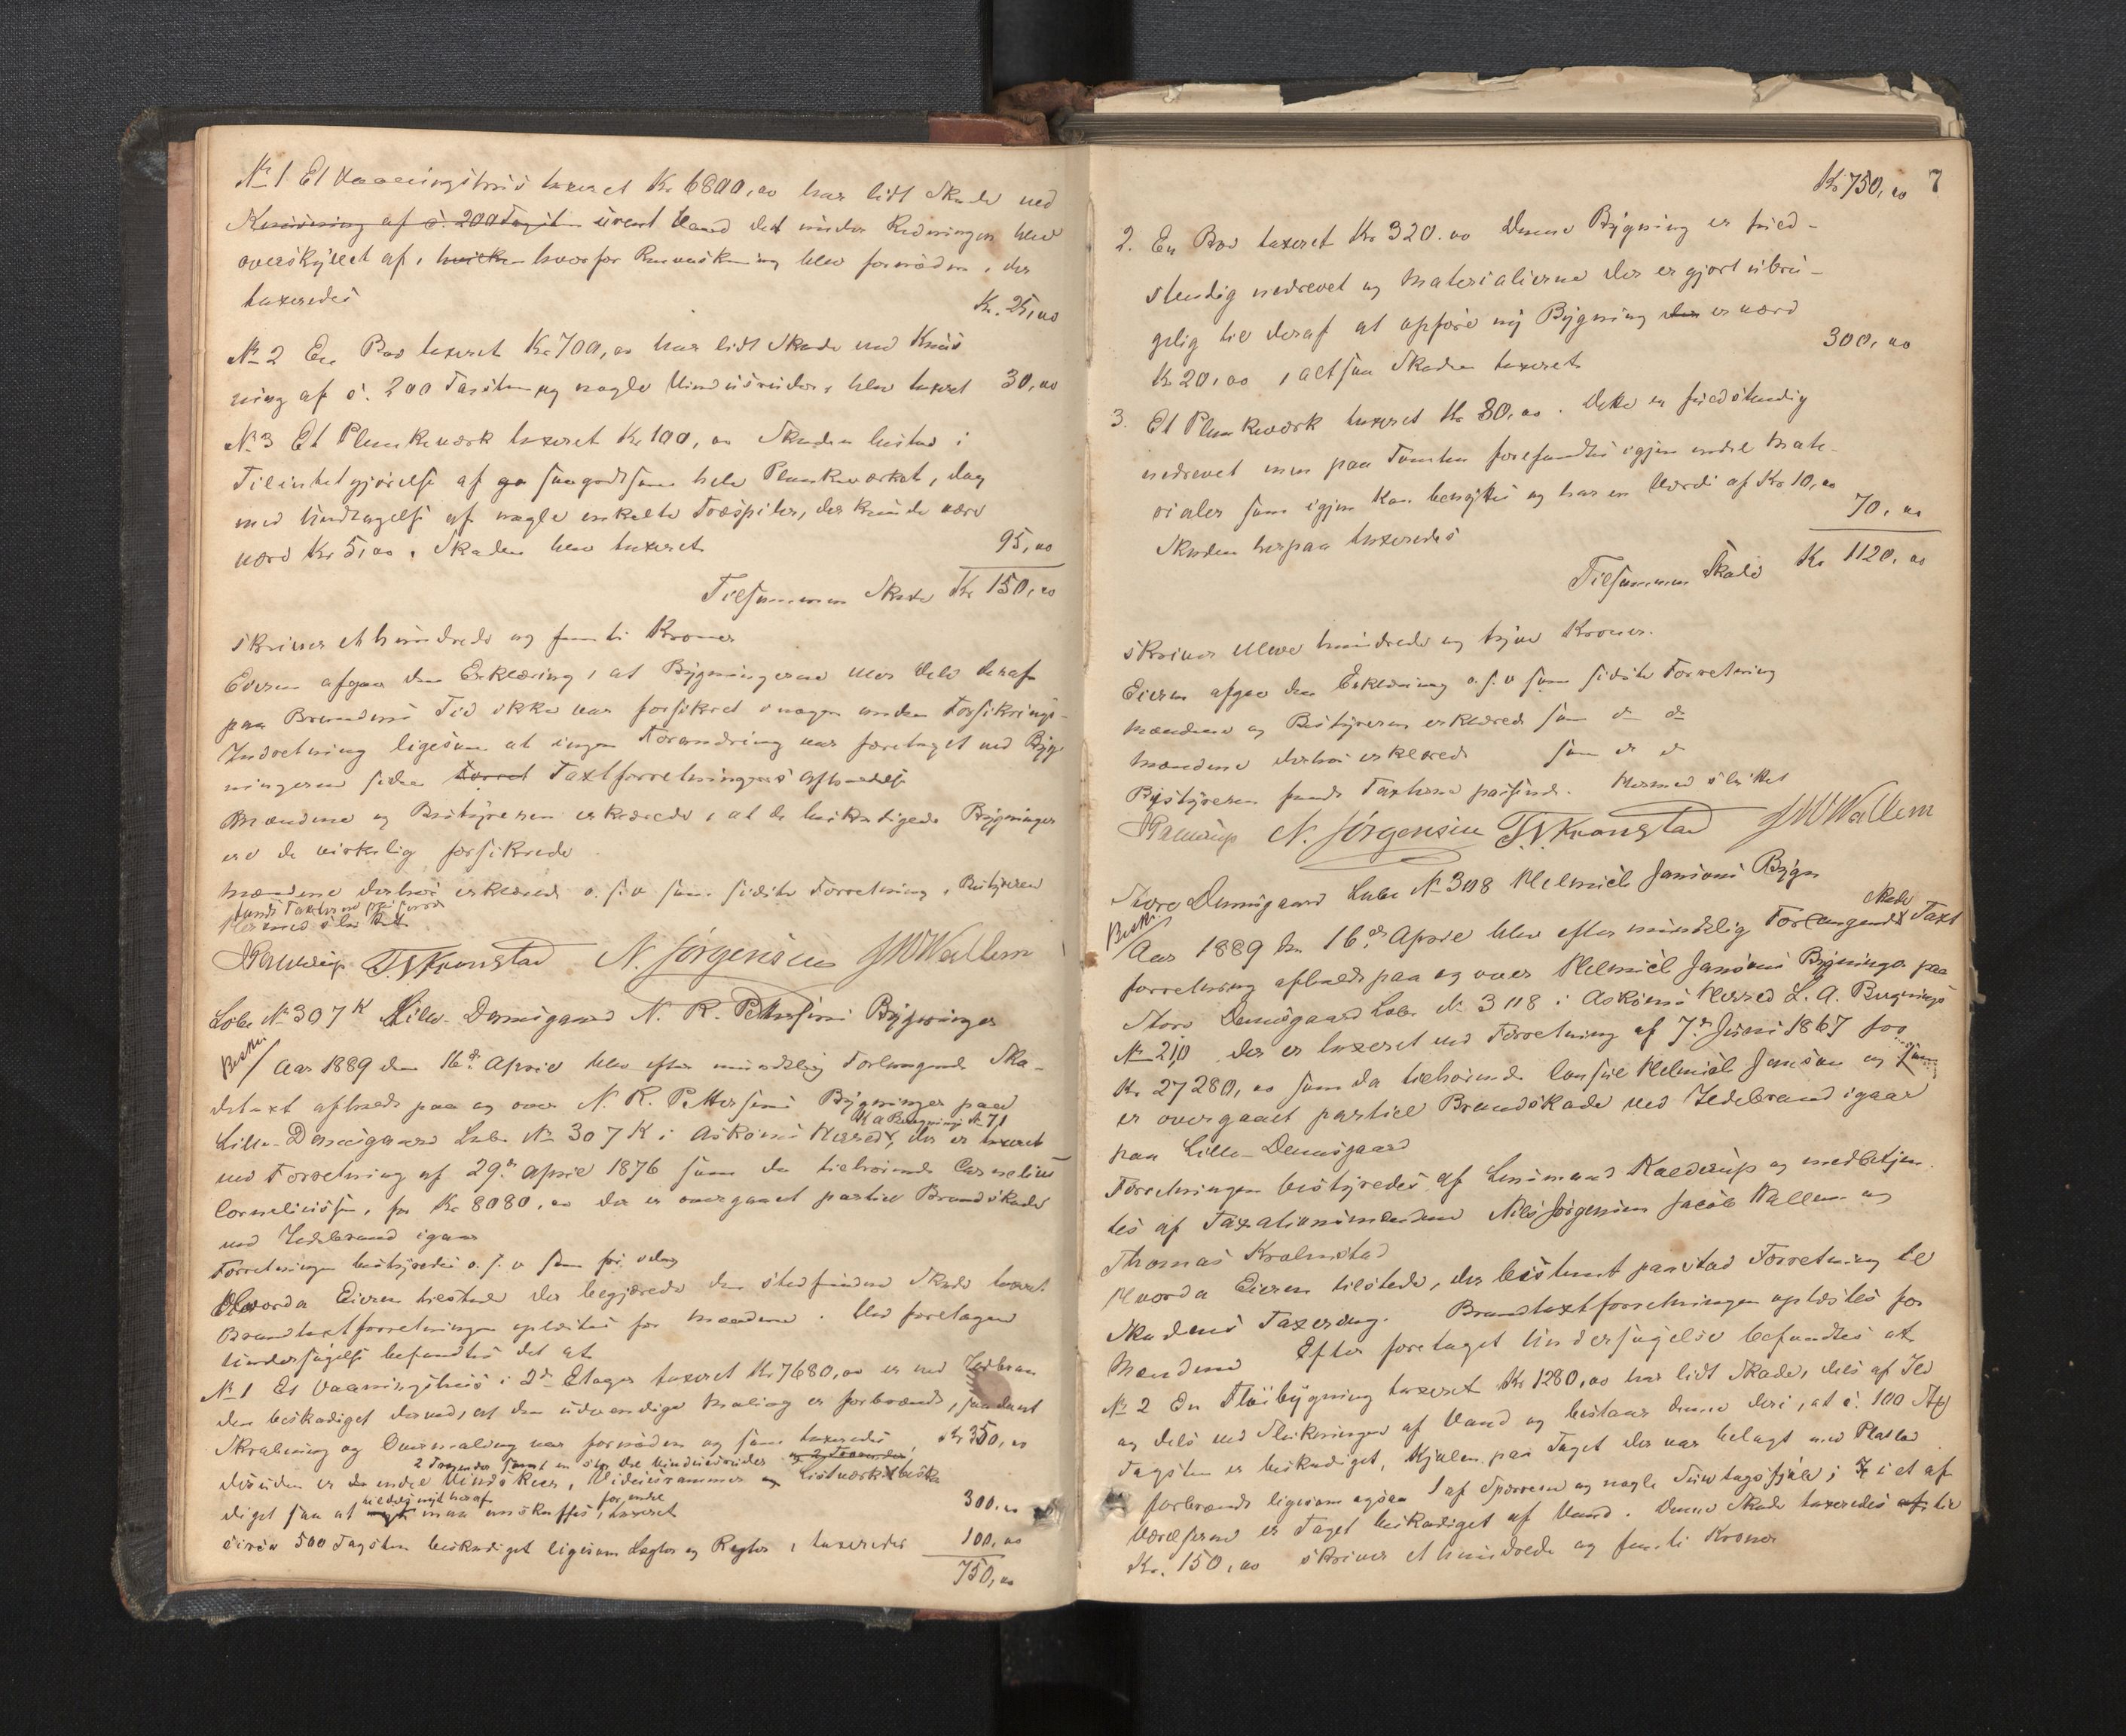 No 1 Et Vaaningshuus taxeret Kr 6800,00 har lidt Skade ved
Knusning af c. 200 Tagsten urent Vand det under Redningen blev
overskyllet af, hvilken hvorfor Renvaskning blev fornöden, der
taxeredes Kr. 25,00
No 2 En Bod taxeret Kr 700,00 har lidt Skade ved Knus
ning af c. 200 Tagsten og nogle Vinduesruder, blev taxeret 30,00
No 3 Et Plankeværk taxeret Kr 100,00 Skaden bestod i
Tilintetgjörelse af saagodtsom hele Plankeværket, dog
med Undtagelse af nogle enkelte Træspiler, der kunde være
værd Kr 5,00. Skaden blev taxeret 95,00
Tilsammen Skade Kr 150,00
skriver et hundrede og femti Kroner
Eieren afgav den Erklæring, at Bygningerne eller dele deraf
paa Brandens Tid ikke var forsikret i nogen anden Forsikrings-
Indretning ligesom at ingen Forandring var foretaget ved Byg
ningerne siden Taxtforretningens Afholdelse
Mændene og Bestyreren erklærede, at de beskadigede Bygninger
ere de virkelig forsikrede
Mændene derhos erklærede o.s.v som sidste Forretning, Bestyreren
fandt Taxterne passende
Hermed sluttet
T. Kronstad N. Jörgensen J W Wallem
Lobe No 307 K Lille-Damsgaard N. R. Pettersens Bygninger
Besk. / Aar 1889 den 16de April blev efter mundtlig Forlangende Ska-
detaxt afholdt paa og over N. R. Pettersens Bygninger paa
Lille-Damsgaard Lobe No 307 K i Asköens Herred, L. a Bygnings No 71 der er taxeret
ved Forretning af 29de April 1876 som da tilhörende Cornelius
Corneliusen, for Kr 8080,00 der er overgaaet partiel Brandskade
ved Ildebrand igaar
Forretningen bestyredes o.s.v som för
Hvorda Eieren tilstede der begjærede den stedfundne Skade taxeret
Brandtaxtforretningen oplæstes for Mændene. Ved foretagen
Undersögelse befandtes det at
No 1 Et Vaaningshuus i 2de Etager taxeret Kr 7680,00 er ved Ildebran
den beskadiget derved, at den udvendige Maling er forbrændt, saadant
Skrabning og Overmaling var fornöden og som taxeredes Kr 350,00
2 Tagrender samt en stor Del Vinduesruder
desuden er endel Vindskeer, Viduesrammer og Listværk beska
diget saa at maa anskaffes, taxeret 300,00
circa 500 Tagsten beskadiget ligesom Lægter og Rygter, taxeredes 100,00
750,00
7
Kr 750,00
2. En Bod taxeret Kr 320.00 Denne Bygning er fuld-
stendig nedrevet og Materialierne der er gjort ubru-
gelig til deraf at opföre ny Bygning er værd
Kr 20,00, altsaa Skaden taxeret 300,00
3. Et Plankeværk taxeret Kr 80,00. Dette er fuldstendig
nedrevet men paa Tomten forefandtes igjen endel Mate-
rialer som igjen kan benyttes og har en Værdi af Kr 10,00
Skaden herpaa taxeredes 70,00
Tilsammen Skade Kr 1120,00
skriver elleve hundrede og tyve Kroner.
Eieren afgav den Erklæring o.s.v som sidste Forretning
Mændene og Bestyreren erklærede som
Mændene derhos erklærede som
Bestyreren fandt Taxterne passende. Hermed sluttet
N. Jörgensen T. Kronstad J W Wallem
Store Damsgaard Lobe No 308 Helmich Jansons Bygn
Besk.
Aar 1889 den 16de April blev efter mundtlig Forlangende Skade Taxt
forretning afholdt paa og over Helmich Jansons Bygninger paa
Store Damsgaard Lobe No 308 i Asköens Herred L. A. Bygnings
No 210 der er taxeret ved Forretning af 7de Juni 1867 for
Kr 27280,00 som da tilhörende Consul Helmich Janson og som
er overgaaet partiel Brandskade ved Ildebrand igaar
paa Lille-Damsgaard
Forretningen bestyredes af Lensmand Kalderup og medbetjen
tes af Taxationsmændene Nils Jörgensen Jacob Wallem og
Thomas Kronstad
Hvorda Eieren tilstede, der bestemt paastod Forretning til
Skadens Taxering. Brandtaxtforretningen oplæstes for
Mændene Efter foretaget Undersögelse befandtes at
No 2 En Flöibygning taxeret Kr 1280,00 har lidt Skade, dels af Ild
og dels ved Slukningen af Vand og bestaar denne deri, at c. 100
Tagsten er beskadiget, Kjölen paa Taget der var belagt med
forbrændt ligesom ogsaa 1 af Sperrerne og nogle Sutagsfjæle; i et af
Værelserne er Taget beskadiget af Vand. Denne Skade taxeredes til
Kr. 150,00 skriver et hundrede og femti Kroner